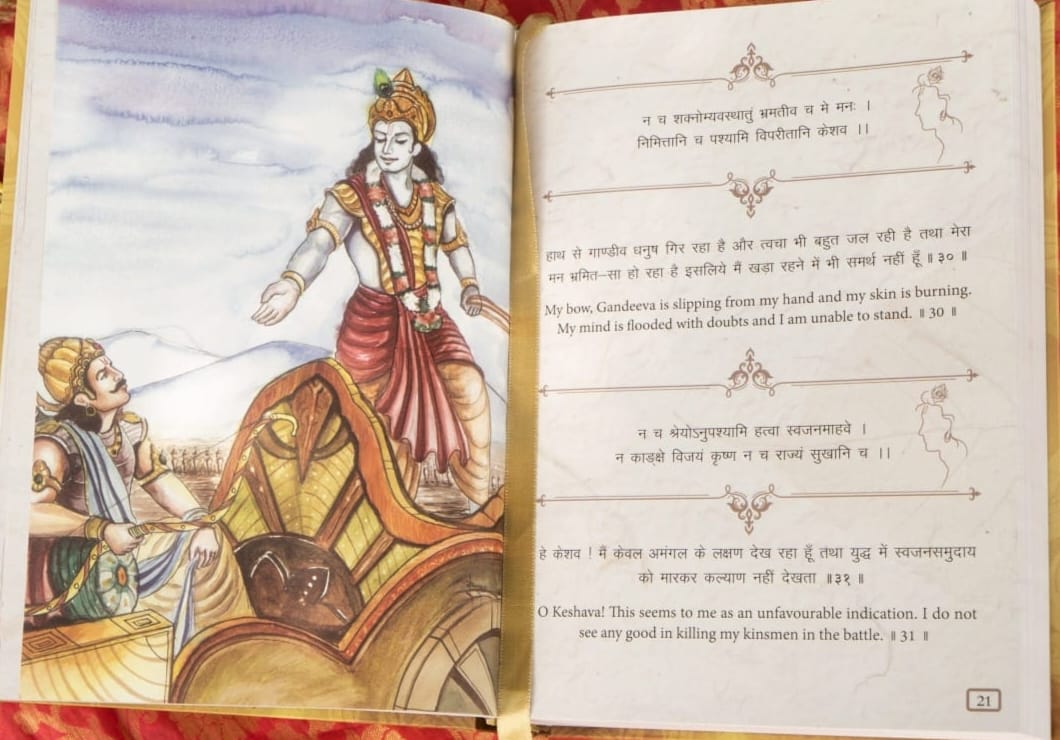 न च शक्नोम्यवस्थातुं भ्रमतीव च मे मनः ।
निमित्तानि च पश्यामि विपरीतानि केशव ।।
हाथ से गाण्डीव धनुष गिर रहा है और त्वचा भी बहुत जल रही है तथा मेरा
मन भ्रमित-सा हो रहा है इसलिये मैं खड़ा रहने में भी समर्थ नहीं हूँ ॥ ३० ॥
My bow, Gandeeva is slipping from my hand and my skin is burning.
My mind is flooded with doubts and I am unable to stand. ॥ 30 ॥
न च श्रेयोऽनुपश्यामि हत्वा स्वजनमाहवे ।
न काङ्क्षे विजयं कृष्ण न च राज्यं सुखानि च ।।
हे केशव ! मैं केवल अमंगल के लक्षण देख रहा हूँ तथा युद्ध में स्वजनसमुदाय
को मारकर कल्याण नहीं देखता ॥३१ ॥
O Keshava! This seems to me as an unfavourable indication. I do not
see any good in killing my kinsmen in the battle. ॥ 31 ॥
21